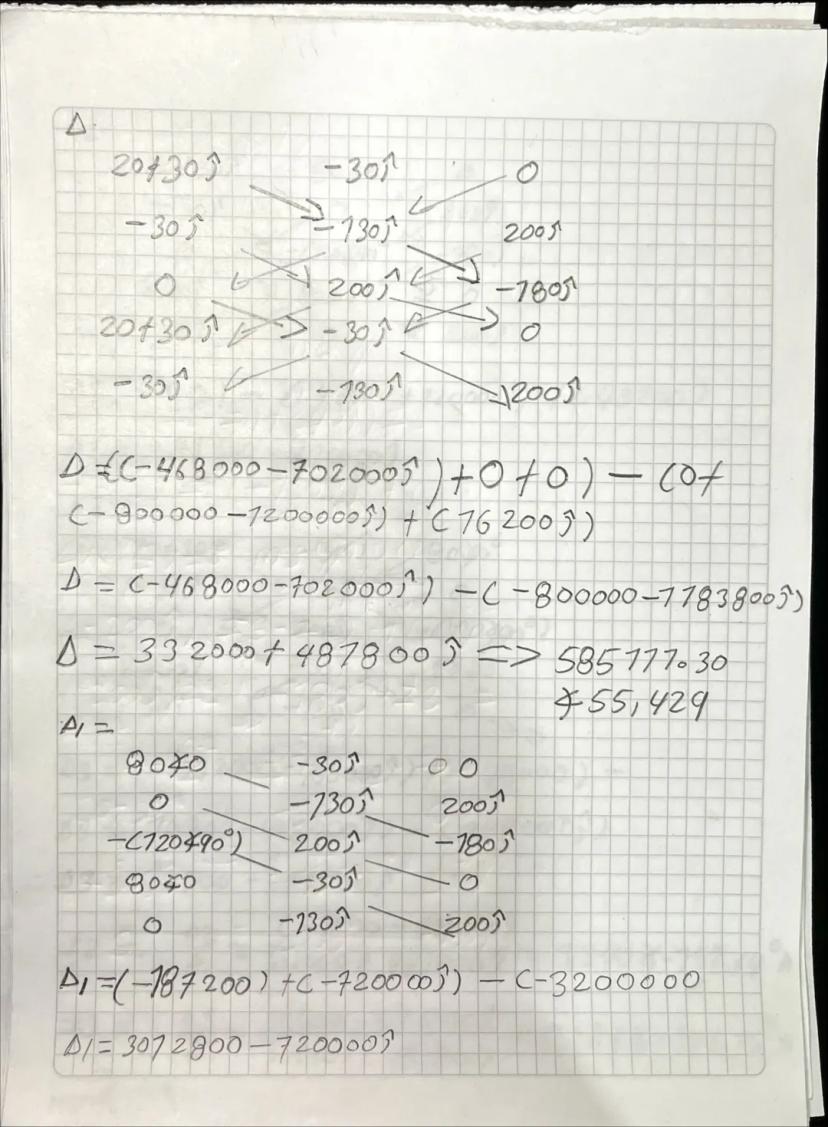 Δ
20+30j -30j 0
-30j -130j 200j
0 200j -180j
20+30j -30j 0
-30j -130j 200j
Δ=((-468000-702000j)+0+0)-(0+
(-800000-1200000j)+(16200j)
Δ=(-468000-702000j)-(-800000-1183800j)
Δ=332000+481800j => 585111.30
∡55,429
Δ1=
80∡0 -30j 0
0 -130j 200j
-(120∡90°) 200j -180j
80∡0 -30j 0
0 -130j 200j
Δ1=(-187200)+(-720000j)-(-3200000
Δ1=3012800-720000j